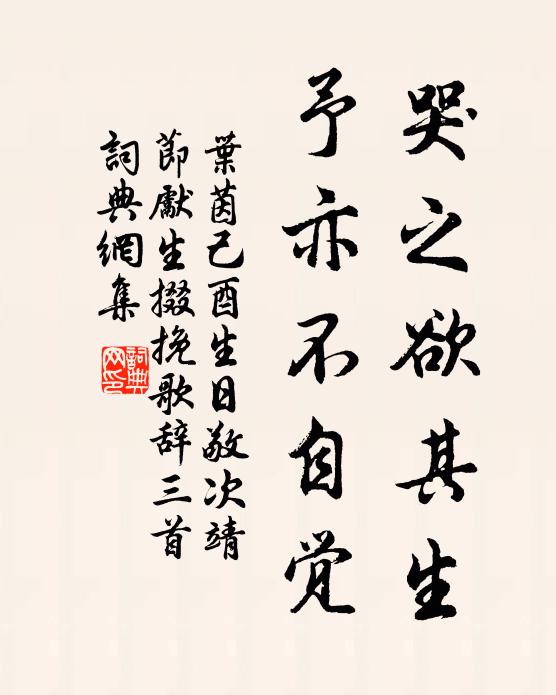 哭之欲其生
予亦不自觉
葉茵己酉生日敬次靖
節獻生掇挽歌辞三首
詞典網集
詞典网印